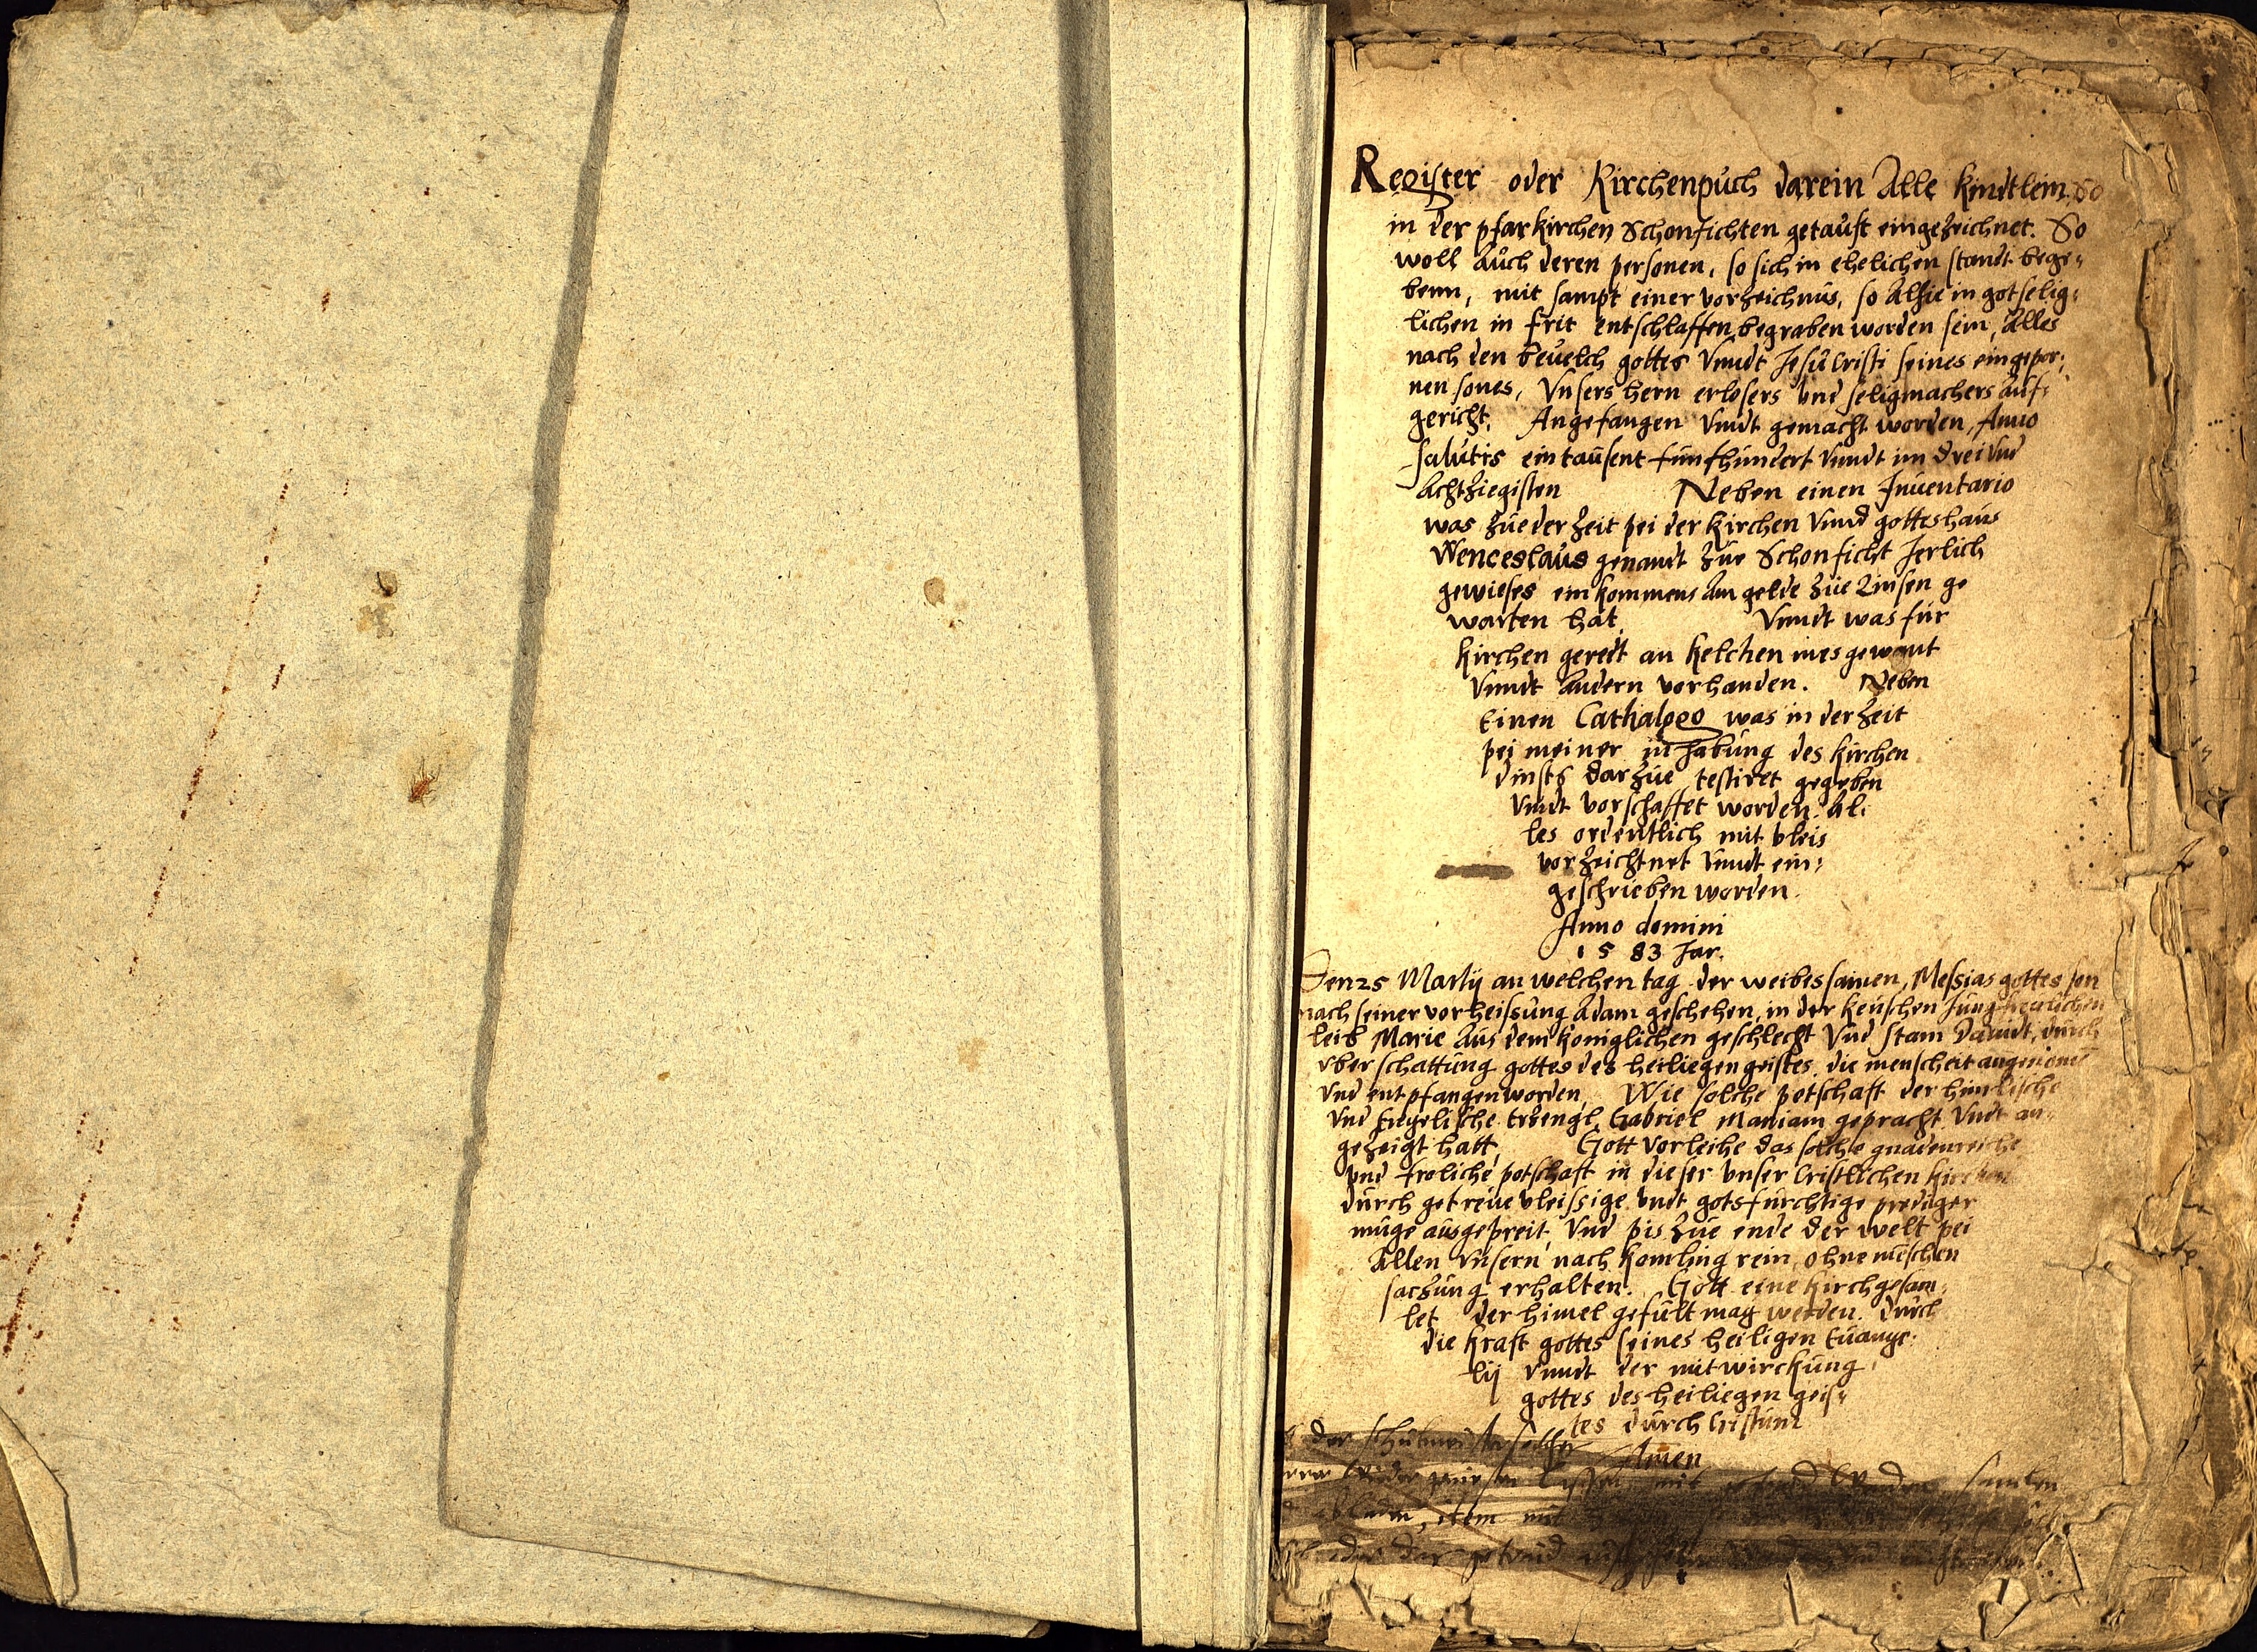 Register oder Kirchenpuch darein Alle kindtlein So
in der pfarkirchen Schonfichten getauft eingezeichnet. So
woll Auch deren personen, so sich in ehelichen standt bege=
benn, mit sampt einer vorzeichnus, so Alhie in gotselig=
lichen in frit entschlaffen begraben worden sein, Alles
nach den beuelch gottes Vnndt Jesu Cristi seines eingepor=
nen sones, Vnsers hern erlosers vnd seligmachers auf=
gericht. Angefangen Vnndt gemacht worden, Anno
salutis ein tausent funfhundert Vnndt im drei Vnd
Achtziegisten Neben einen Inuentario
was zue der zeit pei der kirchen Vnnd gotteshaus
Wenceslaus genandt zue Schonficht Jerlich
gewieses einkommens An gelde zue Zinsen ge
warten hat. Vnndt was fur
kirchen geredt an kelchen mesgewant
Vnndt Andern vorhanden. Neben
Einen Cathalogo was in der zeit
pei meiner inhabung des kirchen
dinsts darzue testiret gegeben
Vndt vorschaffet worden. Al=
les ordentlich mit vleis
vorzeichtnet Vnndt ein=
geschrieben worden.
Anno domini
1583 Jar.
Den 25 Martij an welchen tag der weibes samen, Messias gottes son
nach seiner vorheissung Adam geschehen, in der keuschen Jungfreulichen
leib Marie Aus dem koniglichen geschlecht Vnd stam Dauidt, durch
vberschattung gottes des heiliegen geistes, die menscheit angenomen
Vnd entpfangen worden. Wie solche potschaft der himlische
Vnd Engelische Erzengl Gabriel Mariam gepracht Vndt an=
gezeigt hatt. Gott vorleihe das solche gnadenreiche
vnd froliche potschaft in dieser vnser Cristlichen kirchen
durch getreue vleissige vndt gotsfurchtige prediger
muge ausgepreit, Vnd pis zue ende der welt pei
Allen Vnsern nachkomling rein, ohne menschen
saczung erhalten. Gott eine kirch gesam=
let der himel gefult mag werden. Durch
die kraft gottes seines heiligen Euange=
lij vnndt der mitwirckung
gottes des heiliegen geis=
tes durch Cristum
Amen
der schulmeister
item mit